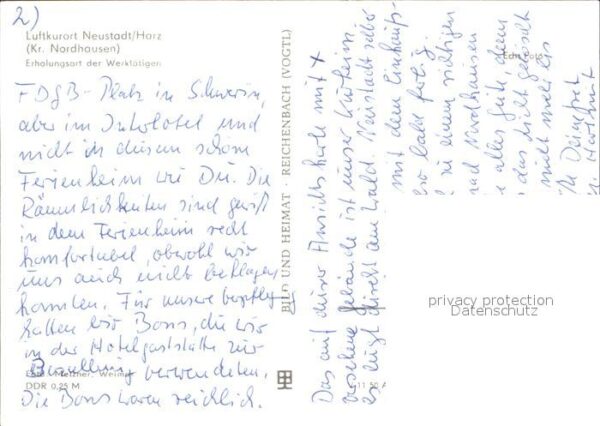 2)
Luftkurort Neustadt/Harz
(Kr. Nordhausen)
Erholungsort der Werktätigen
FDGB-Platz in Schwerin,
aber im Interhotel und
nicht in diesem schönen
Ferienheim wie Du. Die
Räumlichkeiten sind gewiß
in dem Ferienheim recht
komfortabel, obwohl wir
uns auch nicht beklagen
konnten. Für unsere Verpflegung
hatten wir Bons, die wir
in der Hotelgaststätte zur
Bezahlung verwendeten.
Die Bons waren reichlich.
Foto: Meißner, Weimar
DDR 0,25 M
BILD UND HEIMAT · REICHENBACH (VOGTL)
Echt Foto
Das auf dieser Ansichtskarte mit x
versehene Gebäude ist unser Kurheim
es liegt direkt am Wald. Neustadt selber
mit dem Einkaufs-
bald fertig.
in einem richtigen
nach Nordhausen
alles Gute, denn
das nicht gelöscht
nicht mehr
privacy protection
Datenschutz